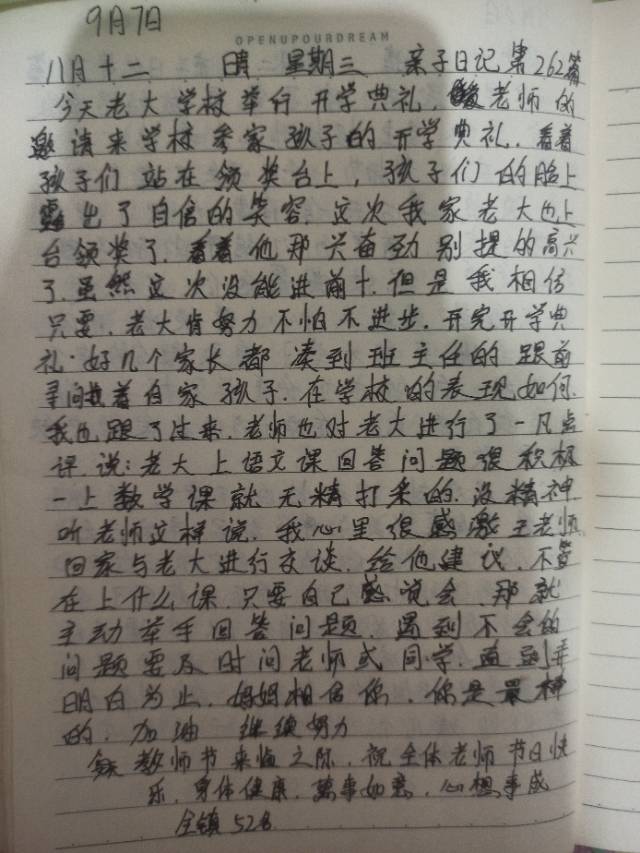 9月7日
OPENUPYOURDREAM
八月十二 晴 星期三 亲子日记第262篇
今天老大学校举行开学典礼,老师的
邀请来学校参家孩子的开学典礼.看着
孩子们站在领奖台上,孩子们的脸上
露出了自信的笑容.这次我家老大也上
台领奖了.看着他那兴奋劲别提的高兴
了.虽然这次没能进前十.但是我相信
只要.老大肯努力不怕不进步.开完开学典
礼.好几个家长都凑到班主任的跟前
寻问找着自家孩子.在学校的表现如何.
我也跟了过来.老师也对老大进行了一凡点
评.说:老大上语文课回答问题很积极
一上数学课就无精打采的.没精神.
听老师这样说.我心里很感激王老师.
回家与老大进行交谈.给他建议.不管
在上什么课.只要自己感觉会.那就
主动举手回答问题.遇到不会的
问题要及时问老师或同学.直到弄
明白为止.妈妈相信你.你是最棒
的.加油 继续努力
教师节来临之际.祝全体老师节日快
乐.身体健康.万事如意.心想事成